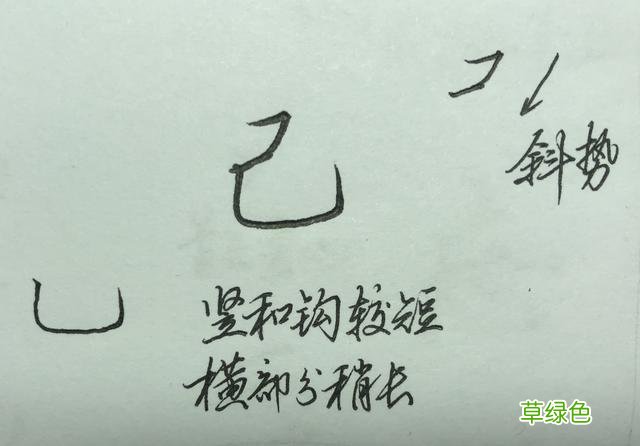 己
斜势
竖和钩较短
横部分稍长
草绿色